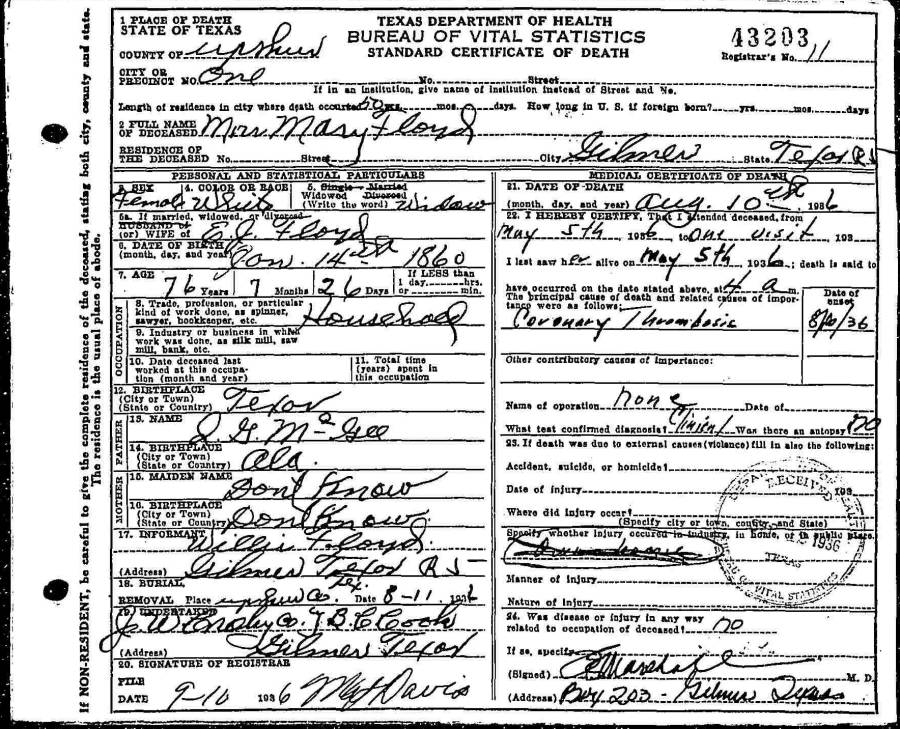 If NON-RESIDENT, be careful to give the complete residence of the deceased, stating both city, county and state.
The residence is the usual place of abode.
TEXAS DEPARTMENT OF HEALTH
BUREAU OF VITAL STATISTICS
STANDARD CERTIFICATE OF DEATH
43203
Registrar's No. 11
1 PLACE OF DEATH
STATE OF TEXAS
COUNTY OF Upshur
CITY OR
PRECINCT NO. One No. Street
If in an institution, give name of institution instead of Street and No.
Length of residence in city where death occurred 50 yrs. mos. days. How long in U. S. if foreign born? yrs. mos. days
2 FULL NAME
OF DECEASED Mrs. Mary Floyd
RESIDENCE OF
THE DECEASED No. Street City Gilmer State Texas R5
PERSONAL AND STATISTICAL PARTICULARS
3. SEX Female
4. COLOR OR RACE White
5. Single Married
Widowed Divorced
(Write the word) Widow
5a. If married, widowed, or divorced
HUSBAND of
(or) WIFE of E. J. Floyd
6. DATE OF BIRTH
(month, day, and year) Jan. 14th 1860
7. AGE
76 Years 7 Months 26 Days
If LESS than
1 day, hrs.
or min.
OCCUPATION
8. Trade, profession, or particular
kind of work done, as spinner,
sawyer, bookkeeper, etc. Household
9. Industry or business in which
work was done, as silk mill, saw
mill, bank, etc.
10. Date deceased last
worked at this occupa-
tion (month and year)
11. Total time
(years) spent in
this occupation
12. BIRTHPLACE
(City or Town)
(State or Country) Texas
FATHER
13. NAME
J G. McGee
14. BIRTHPLACE
(City or Town)
(State or Country) Ala.
MOTHER
15. MAIDEN NAME
Dont Know
16. BIRTHPLACE
(City or Town)
(State or Country) Dont Know
17. INFORMANT Willie Floyd
(Address) Gilmer Texas R5
18. BURIAL
REMOVAL Place Upshur Co. Tex. Date 8-11 1936
19. UNDERTAKER
J. W. Crosby Co. T. B. C Cook
(Address) Gilmer Texas
20. SIGNATURE OF REGISTRAR
FILE
DATE 9-10 1936 Davis
MEDICAL CERTIFICATE OF DEATH
21. DATE OF DEATH
(month, day, and year) Aug. 10th 1936
22. I HEREBY CERTIFY, That I attended deceased from
May 5th 1936 to One visit 193
I last saw her alive on May 5th, 1936; death is said to
have occurred on the date stated above, at 4 a m.
The principal cause of death and related causes of impor-
tance were as follows:
Date of
onset
Coronary Thrombosis 8/10/36
Other contributory causes of importance:
Name of operation none Date of
What test confirmed diagnosis? Clinical Was there an autopsy? no
23. If death was due to external causes (violence) fill in also the following:
Accident, suicide, or homicide?
Date of injury 193
Where did injury occur?
(Specify city or town, county, and State)
Specify whether injury occured in industry, in home, or in public place.
RECEIVED
1936
TEXAS
BUREAU OF VITAL STATISTICS
Manner of injury
Nature of injury
24. Was disease or injury in any way
related to occupation of deceased? no
If so, specify
(Signed) Marshall M. D.
(Address) Box 203 - Gilmer Texas